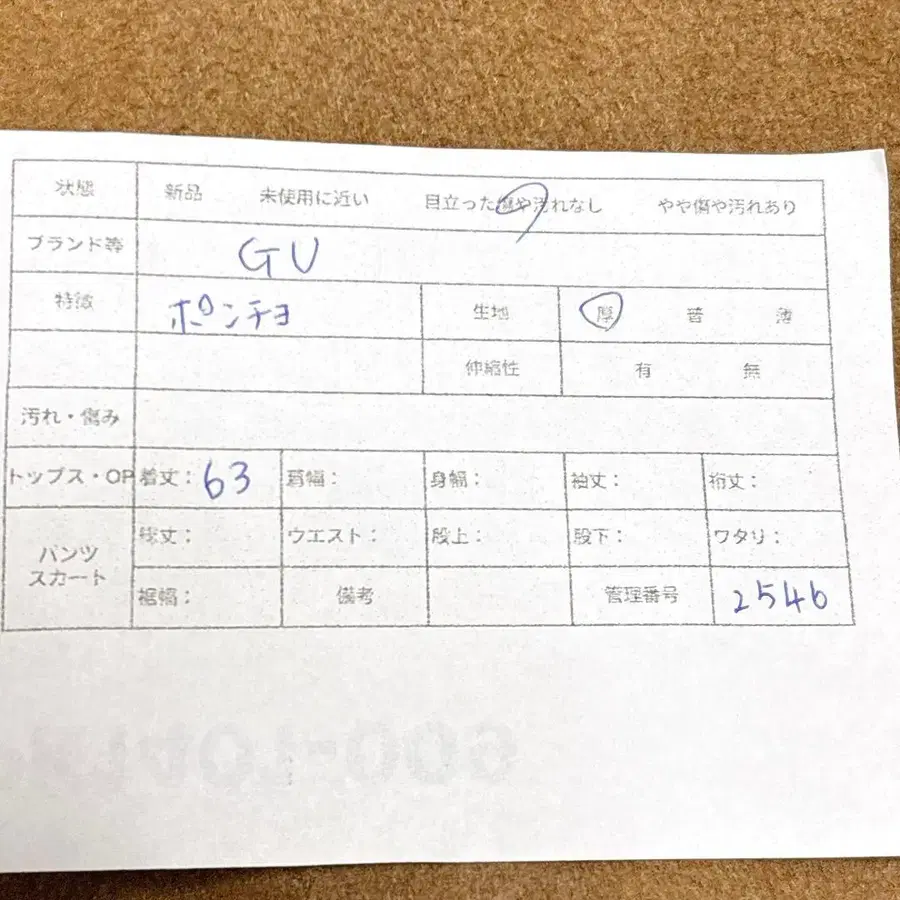 状態 新品 未使用に近い 目立った傷や汚れなし やや傷や汚れあり
ブランド等 GU
特徴 ポンチョ 生地 厚 普 薄
伸縮性 有 無
汚れ・傷み
トップス・OP 着丈: 63 肩幅: 身幅: 袖丈: 裄丈:
パンツ スカート 総丈: ウエスト: 股上: 股下: ワタリ:
裾幅: 備考 管理番号 2546